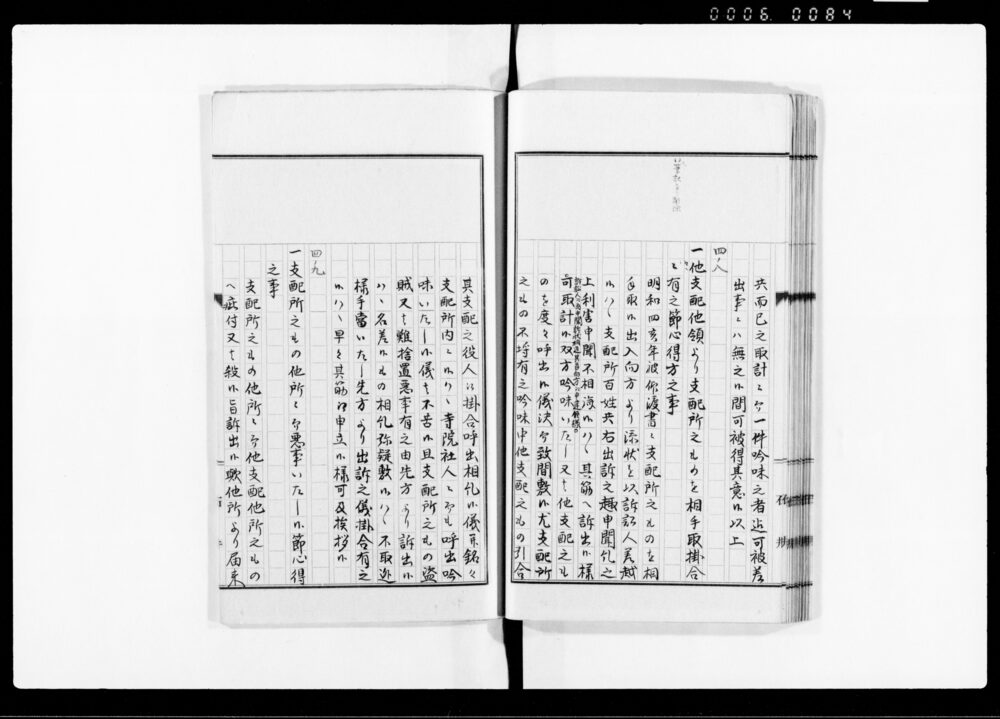 0006 0084
共而已之取計ニ而一件吟味之者迄可被差
出事ニハ無之候間可被得其意候以上
四八
一他支配他領より支配所之ものを相手取掛合
ニ有之節心得方之事
明和四亥年被仰渡書ニ支配所之ものを相
手取候出入向方より添状を以訴訟人差越
候ハヽ支配所百姓共右出訴之趣申聞糺之
上利害申聞不相済候ハヽ其筋へ訴出候様
可取計候双方吟味いたし又は他支配之も
のを度々呼出候儀決而致間敷候尤支配所
之もの不埒有之吟味中他支配之もの引合
其支配之役人江掛合呼出相糺候儀并銘々
支配所内ニ候ハヽ寺院社人ニ而も呼出吟
味いたし候儀は不苦候且支配所之もの盗
賊又は難捨置悪事有之由先方より訴出候
ハヽ名差候もの相糺弥疑敷候ハヽ不取逃
様手当いたし先方より出訴之儀掛合有之
候ハヽ早々其筋江申立候様可及挨拶候
四九
一支配所之もの他所ニ而悪事いたし候節心得
之事
支配所之もの他所ニ而他支配他所之もの
へ疵付又は殺候旨訴出候歟他所より届来